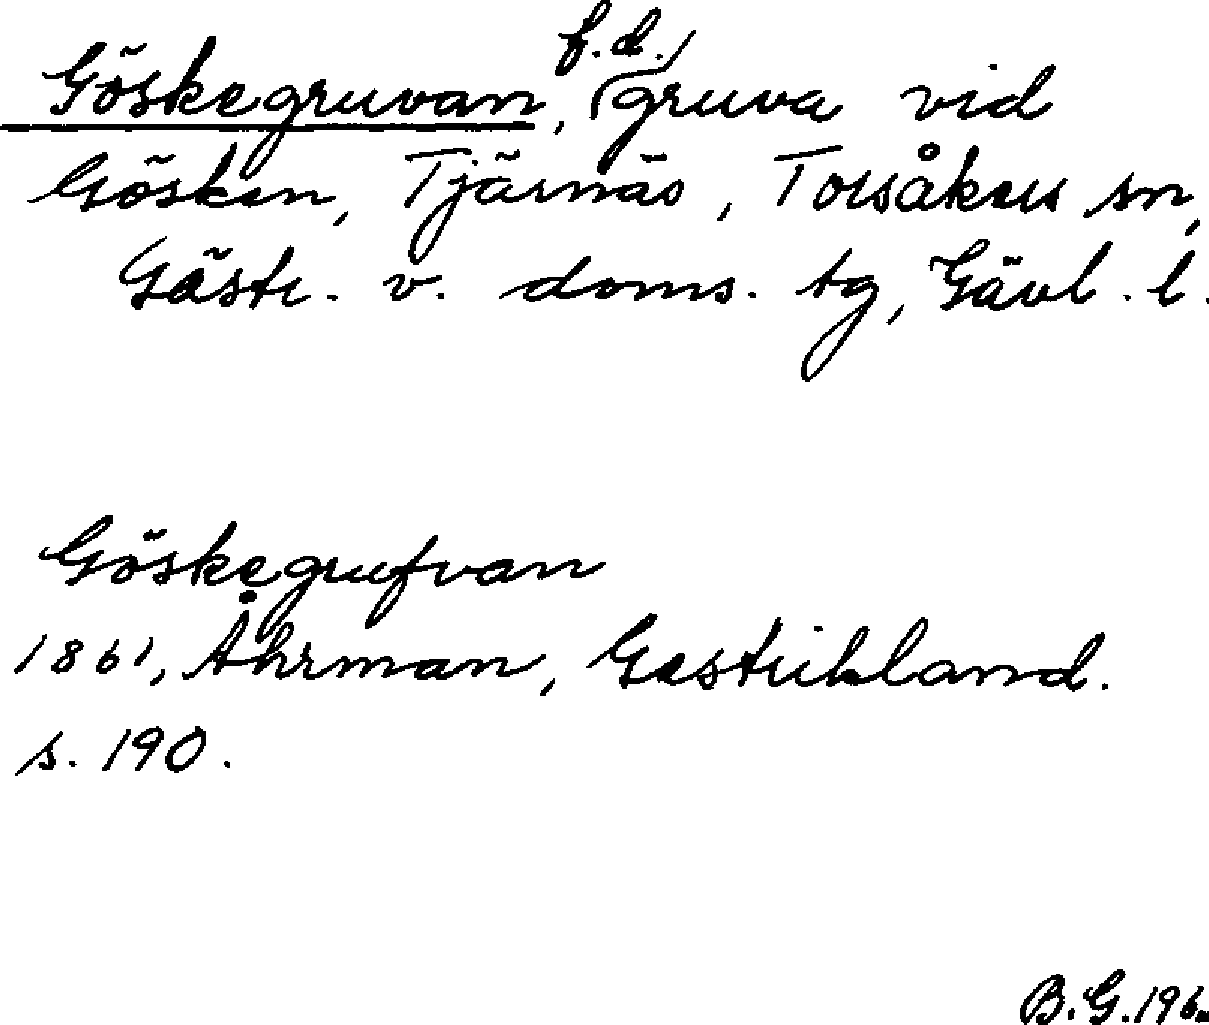 Göskegruvan, f.d. gruva vid
Gösken, Tjärnäs, Torsåkers sn,
Gästr. v. doms. tg, Gävl. l.
Göskegrufvan
1861, Åhrman, Gestrikland.
s. 190.
B.G.